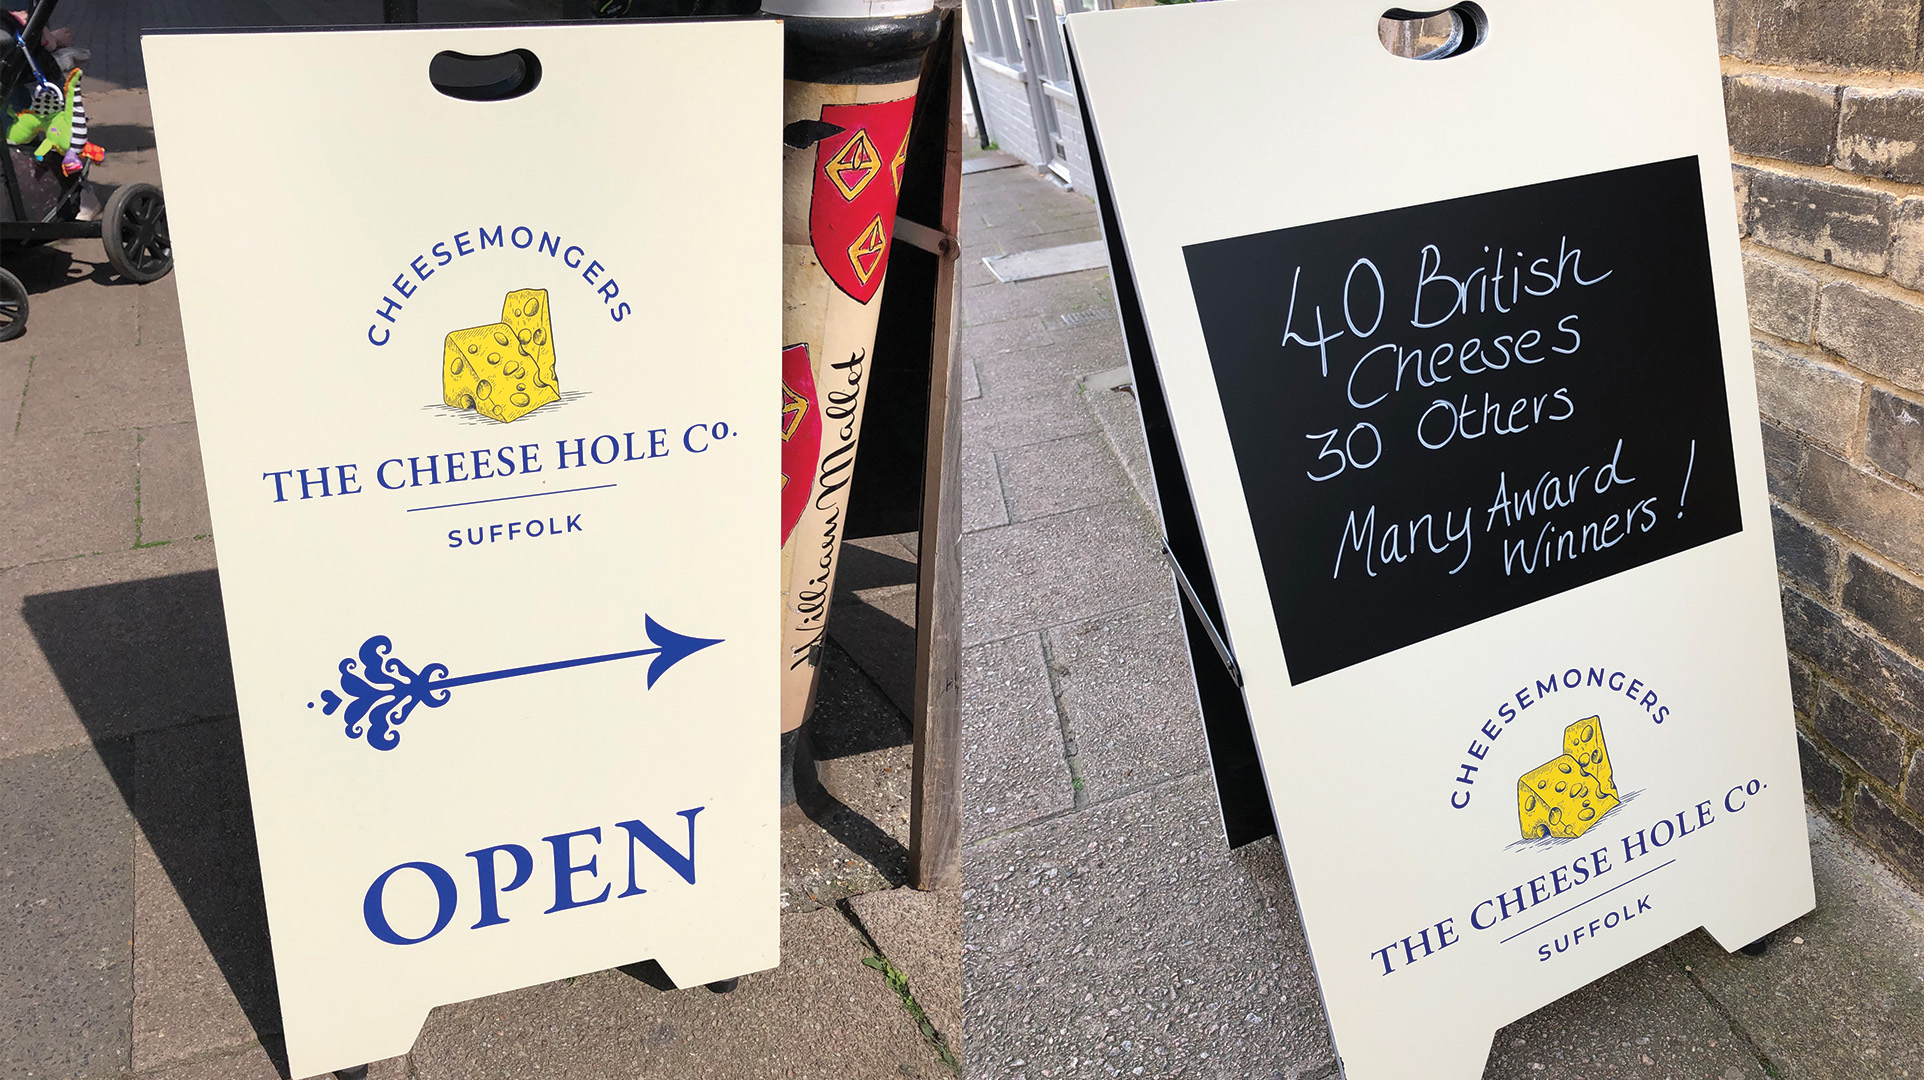 CHEESEMONGERS
THE CHEESE HOLE Co.
SUFFOLK
OPEN
William Mallot
40 British
Cheeses
30 Others
Many Award
Winners!
CHEESEMONGERS
THE CHEESE HOLE Co.
SUFFOLK